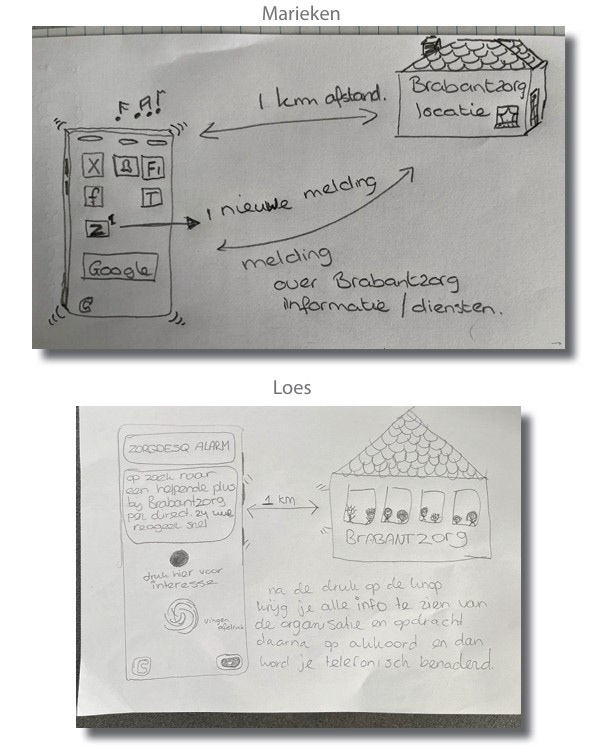 Marieken
1 km afstand.
Brabantzorg
locatie
X B Fi
f T
z 1
Google
1 nieuwe melding
melding
over Brabantzorg
informatie / diensten.
Loes
ZORGDESQ ALARM
op zoek naar
een helpende plus
by Brabantzorg
per direct.
reageer snel
druk hier voor
interesse
vinger
afdruk
1 km
BRABANTZORG
na de druk op de knop
krijg je alle info te zien van
de organisatie en opdracht
daarna op akkoord en dan
word je telefonisch benaderd.